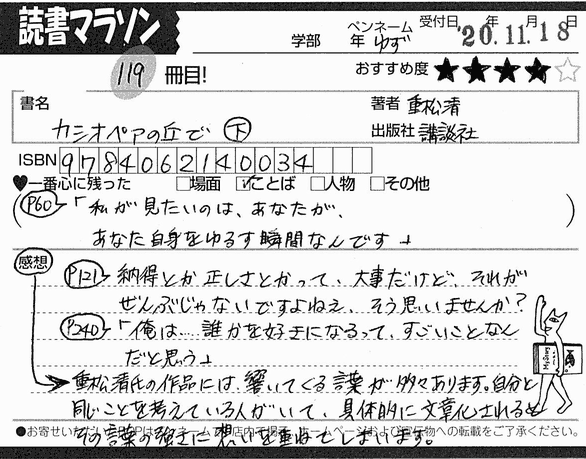 読書マラソン
学部 年 ペンネーム ゆず 受付日 '20年11月18日
119 冊目! おすすめ度 ★★★★☆
書名 著者 重松清
カシオペアの丘で 下 出版社 講談社
ISBN 9784062140034
♥一番心に残った □場面 ☑ことば □人物 □その他
(P60 「私が見たいのは、あなたが、
あなた自身をゆるす瞬間なんです」)
感想
P121 納得とか正しさとかって、大事だけど、それが
ぜんぶじゃないですよねえ、そう思いませんか?
P240 「俺は…誰かを好きになるって、すごいことなん
だと思う」
重松清氏の作品には、響いてくる言葉が多々あります。自分と
同じことを考えている人がいて、具体的に文章化されると
その言葉の強さに想いを重ねてしまいます。